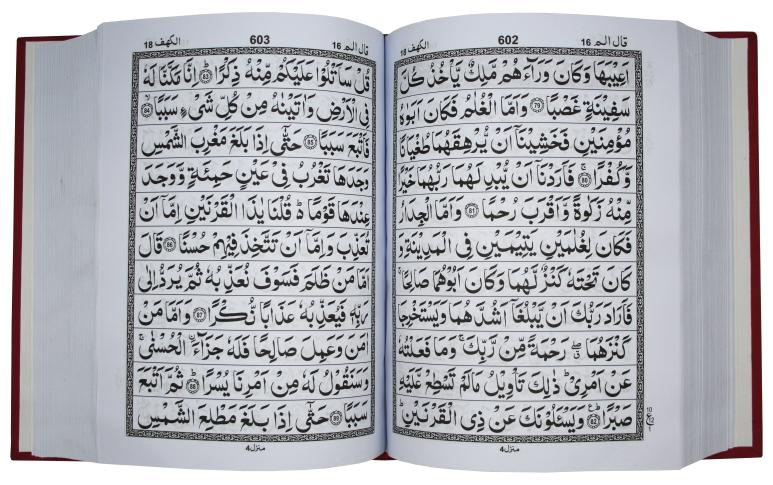 قال الم ١٦
602
الكهف ١٨
اَعِيْبَهَا وَكَانَ وَرَآءَهُمْ مَّلِكٌ يَّاْخُذُ كُلَّ
سَفِيْنَةٍ غَصْبًا ﴿79﴾ وَاَمَّا الْغُلٰمُ فَكَانَ اَبَوٰهُ
مُؤْمِنَيْنِ فَخَشِيْنَآ اَنْ يُّرْهِقَهُمَا طُغْيَانًا
وَّكُفْرًا ﴿80﴾ فَاَرَدْنَآ اَنْ يُّبْدِلَهُمَا رَبُّهُمَا خَيْرًا
مِّنْهُ زَكٰوةً وَّاَقْرَبَ رُحْمًا ﴿81﴾ وَاَمَّا الْجِدَارُ
فَكَانَ لِغُلٰمَيْنِ يَتِيْمَيْنِ فِى الْمَدِيْنَةِ وَ
كَانَ تَحْتَهٗ كَنْزٌ لَّهُمَا وَكَانَ اَبُوْهُمَا صَالِحًا
فَاَرَادَ رَبُّكَ اَنْ يَّبْلُغَآ اَشُدَّهُمَا وَيَسْتَخْرِجَا
كَنْزَهُمَا رَحْمَةً مِّنْ رَّبِّكَ وَمَا فَعَلْتُهٗ
عَنْ اَمْرِىْ ذٰلِكَ تَاْوِيْلُ مَا لَمْ تَسْطِعْ عَّلَيْهِ
صَبْرًا ﴿82﴾ وَيَسْـَٔلُوْنَكَ عَنْ ذِى الْقَرْنَيْنِ
منزل ٤
قال الم ١٦
603
الكهف ١٨
قُلْ سَاَتْلُوْا عَلَيْكُمْ مِّنْهُ ذِكْرًا ﴿83﴾ اِنَّا مَكَّنَّا لَهٗ
فِى الْاَرْضِ وَاٰتَيْنٰهُ مِنْ كُلِّ شَىْءٍ سَبَبًا ﴿84﴾
فَاَتْبَعَ سَبَبًا ﴿85﴾ حَتّٰٓى اِذَا بَلَغَ مَغْرِبَ الشَّمْسِ
وَجَدَهَا تَغْرُبُ فِىْ عَيْنٍ حَمِئَةٍ وَّوَجَدَ
عِنْدَهَا قَوْمًا قُلْنَا يٰذَا الْقَرْنَيْنِ اِمَّآ اَنْ
تُعَذِّبَ وَاِمَّآ اَنْ تَتَّخِذَ فِيْهِمْ حُسْنًا ﴿86﴾ قَالَ
اَمَّا مَنْ ظَلَمَ فَسَوْفَ نُعَذِّبُهٗ ثُمَّ يُرَدُّ اِلٰى
رَبِّهٖ فَيُعَذِّبُهٗ عَذَابًا نُّكْرًا ﴿87﴾ وَاَمَّا مَنْ
اٰمَنَ وَعَمِلَ صَالِحًا فَلَهٗ جَزَآءَ ۨالْحُسْنٰى
وَسَنَقُوْلُ لَهٗ مِنْ اَمْرِنَا يُسْرًا ﴿88﴾ ثُمَّ اَتْبَعَ
سَبَبًا ﴿89﴾ حَتّٰٓى اِذَا بَلَغَ مَطْلِعَ الشَّمْسِ
منزل ٤